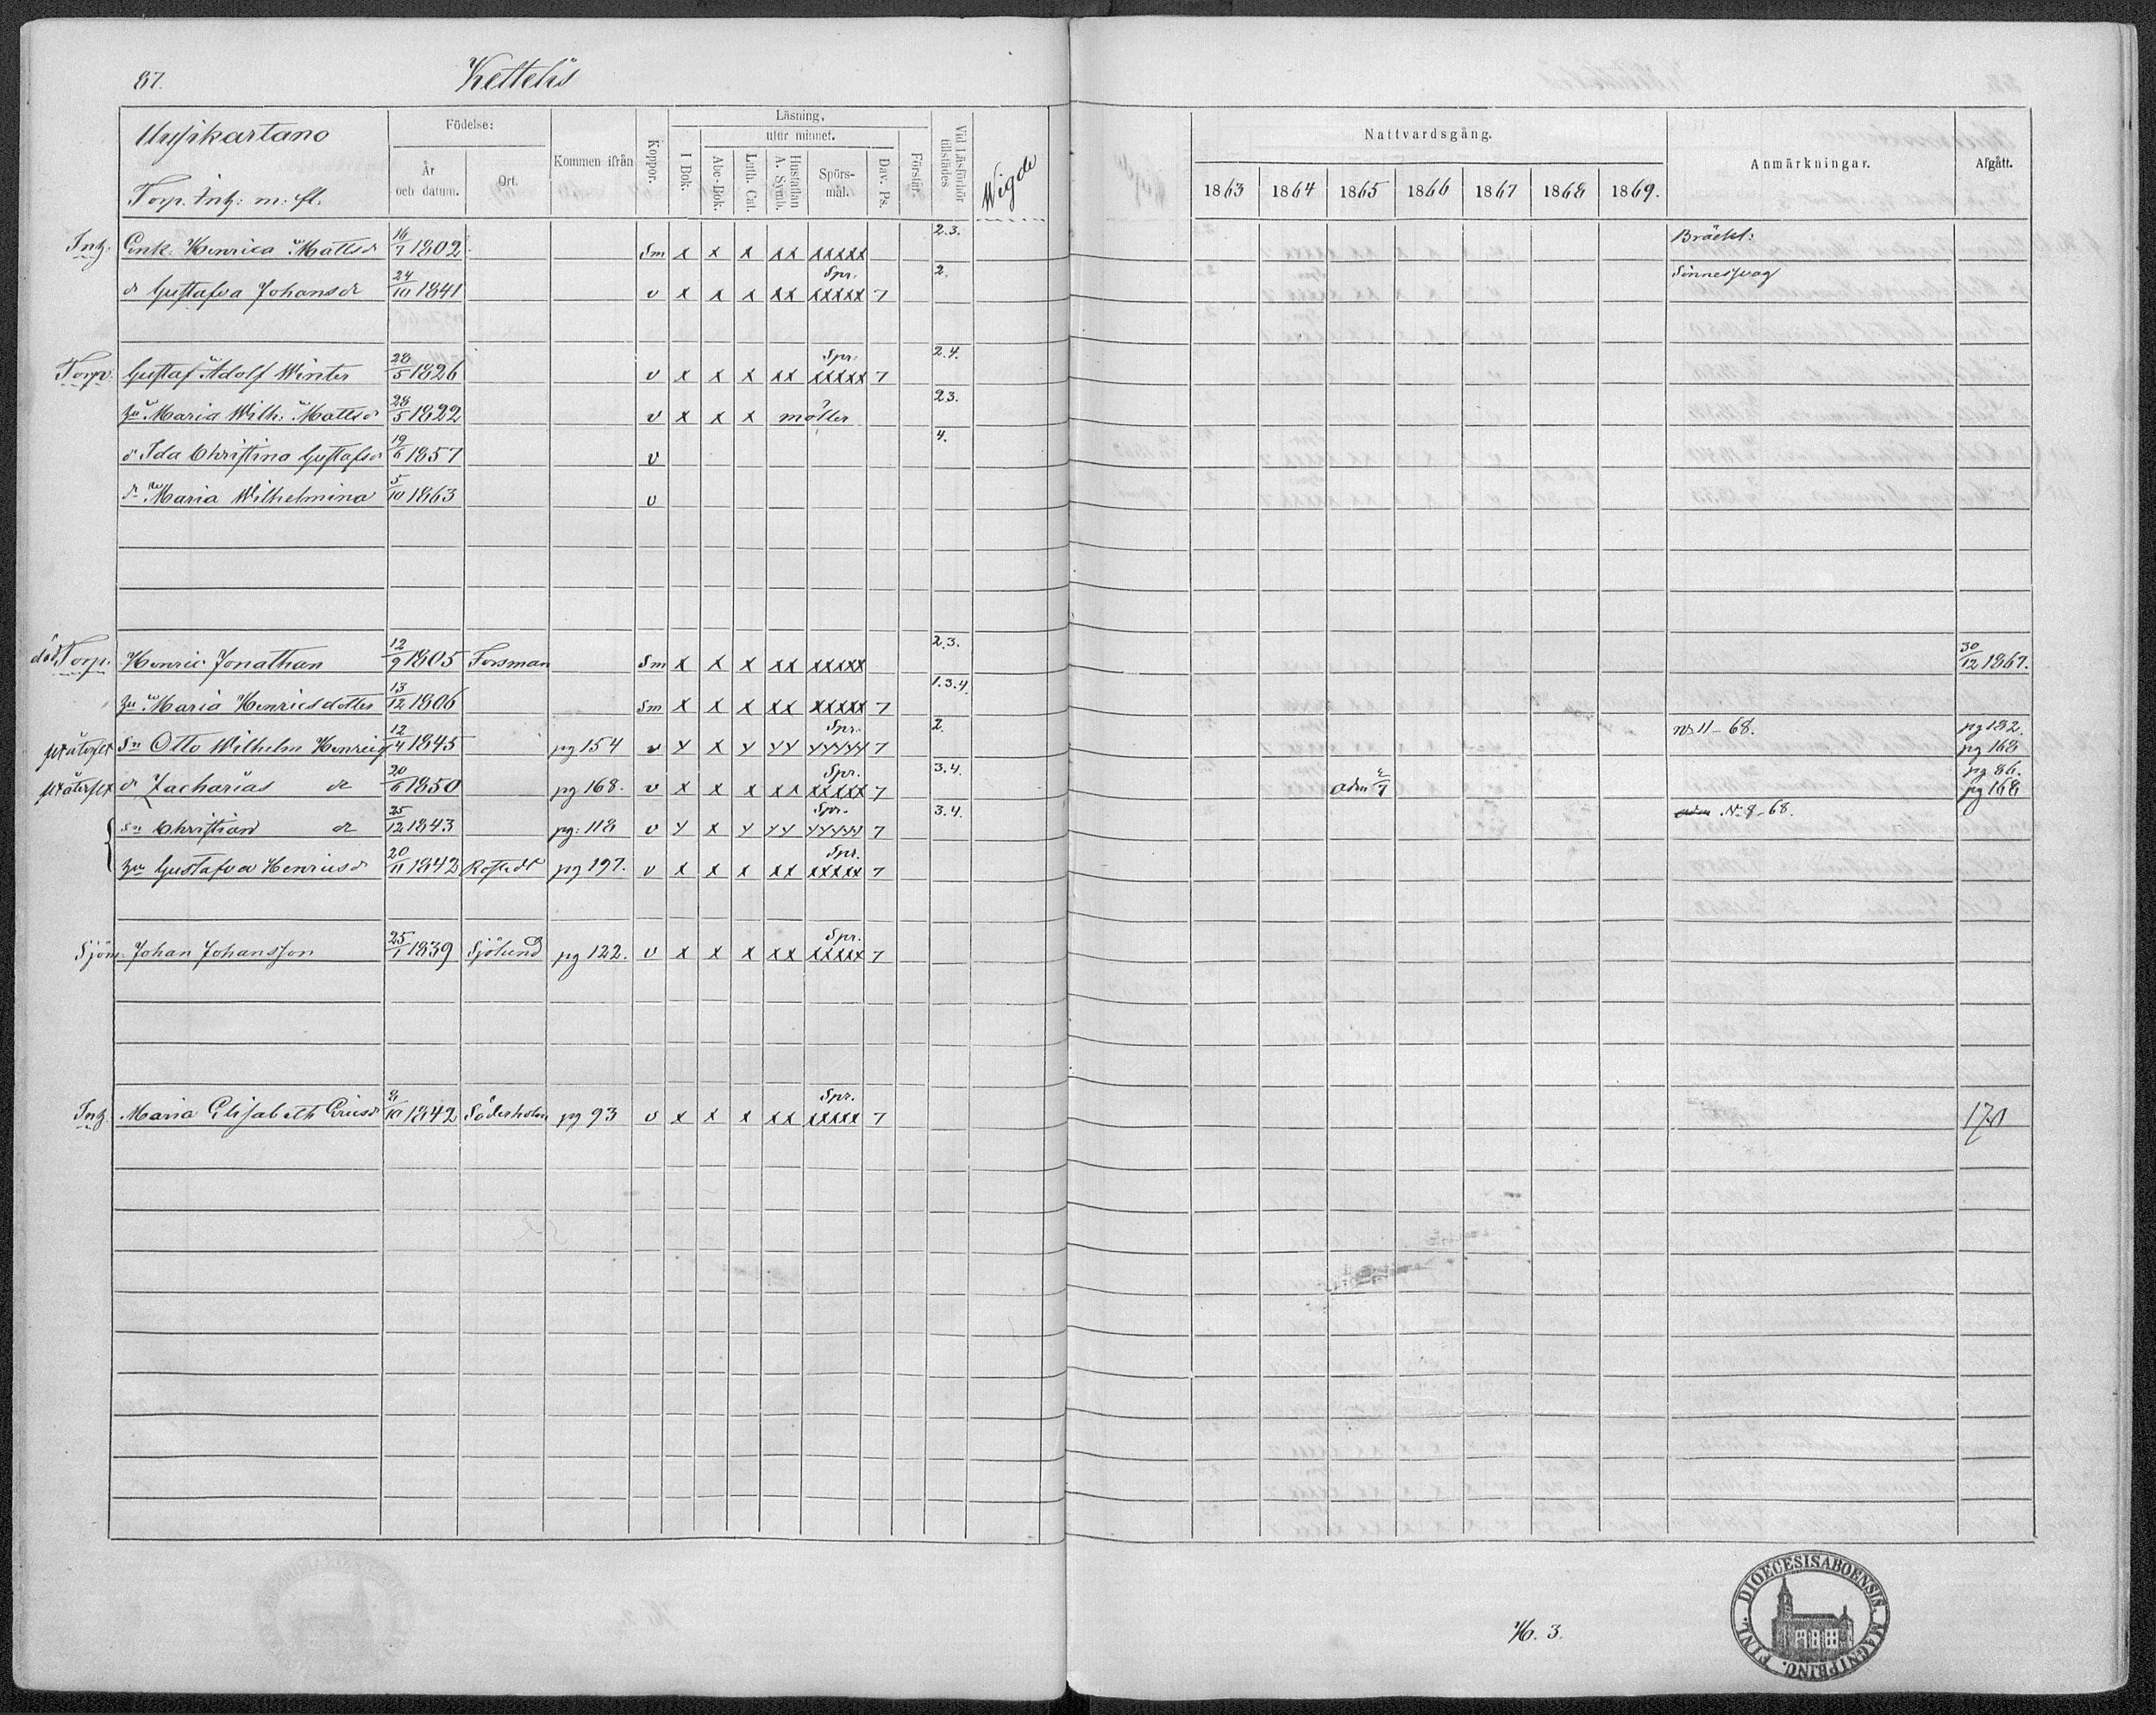 87. Kettelis
Uusikartano
Torp. Inh: m. fl.
Födelse:
År och datum.
Ort.
Kommen ifrån
Koppor.
Läsning,
I Bok.
utur minnet.
Abc-Bok.
Luth. Cat.
Hustaflan A. Symb.
Spörs-mål.
Dav. Ps.
Förstår
Vid Läsförhör tillstädes
Wigde
Nattvardsgång.
1863 1864 1865 1866 1867 1868 1869.
Anmärkningar.
Afgått.
Inh. Enk. Henrica Mattsd 16/7 1802 Sm x x x xx xxxxx 2.3. Bräckl:
d Gustafva Johansdr 24/10 1841 v x x x xx Spr. xxxxx 7 2. Sinnessvag
Torp. Gustaf Adolf Winter 28/5 1826 v x x x xx Spr. xxxxx 7 2.4.
hu Maria Wilh: Mattsd 28/5 1822 v x x x 23.
d Ida Christina Gustafsd 19/6 1857 v 4.
d Maria Wilhelmina 5/10 1863 v
död Torp. Henric Jonathan 12/9 1805 Forsman Sm x x x xx xxxxx 2.3. 30/12 1867.
hu Maria Henricsdotter 13/12 1806 Sm x x x xx xxxxx 7 1.3.4.
Sn Otto Wilhelm 12/4 1845 pg 154 v x x x xx Spr. xxxxx 7 2. No 11-68. pg 182. pg 168
d Zacharias dr 20/6 1850 pg 168. v x x x xx Spr. xxxxx 7 3.4. adm pg 86. pg 168
sn Christian dr 25/12 1843 pg: 118 v x x x xx Spr. xxxxx 7 3.4. N. 8-68.
hu Gustafva Henricsd 20/11 1842 Rostedt pg 197. v x x x xx Spr. xxxxx 7
Sjöm. Johan Johansson 25/1 1839 Sjölund pg 122. v x x x xx Spr. xxxxx 7
Inh. Maria Elisabeth Ericsd 8/10 1842 Söderholm pg 93 v x x x xx Spr. xxxxx 7
H. 3.
DIOECESIS ABOENSIS. MAGNI PRINC. FINL.